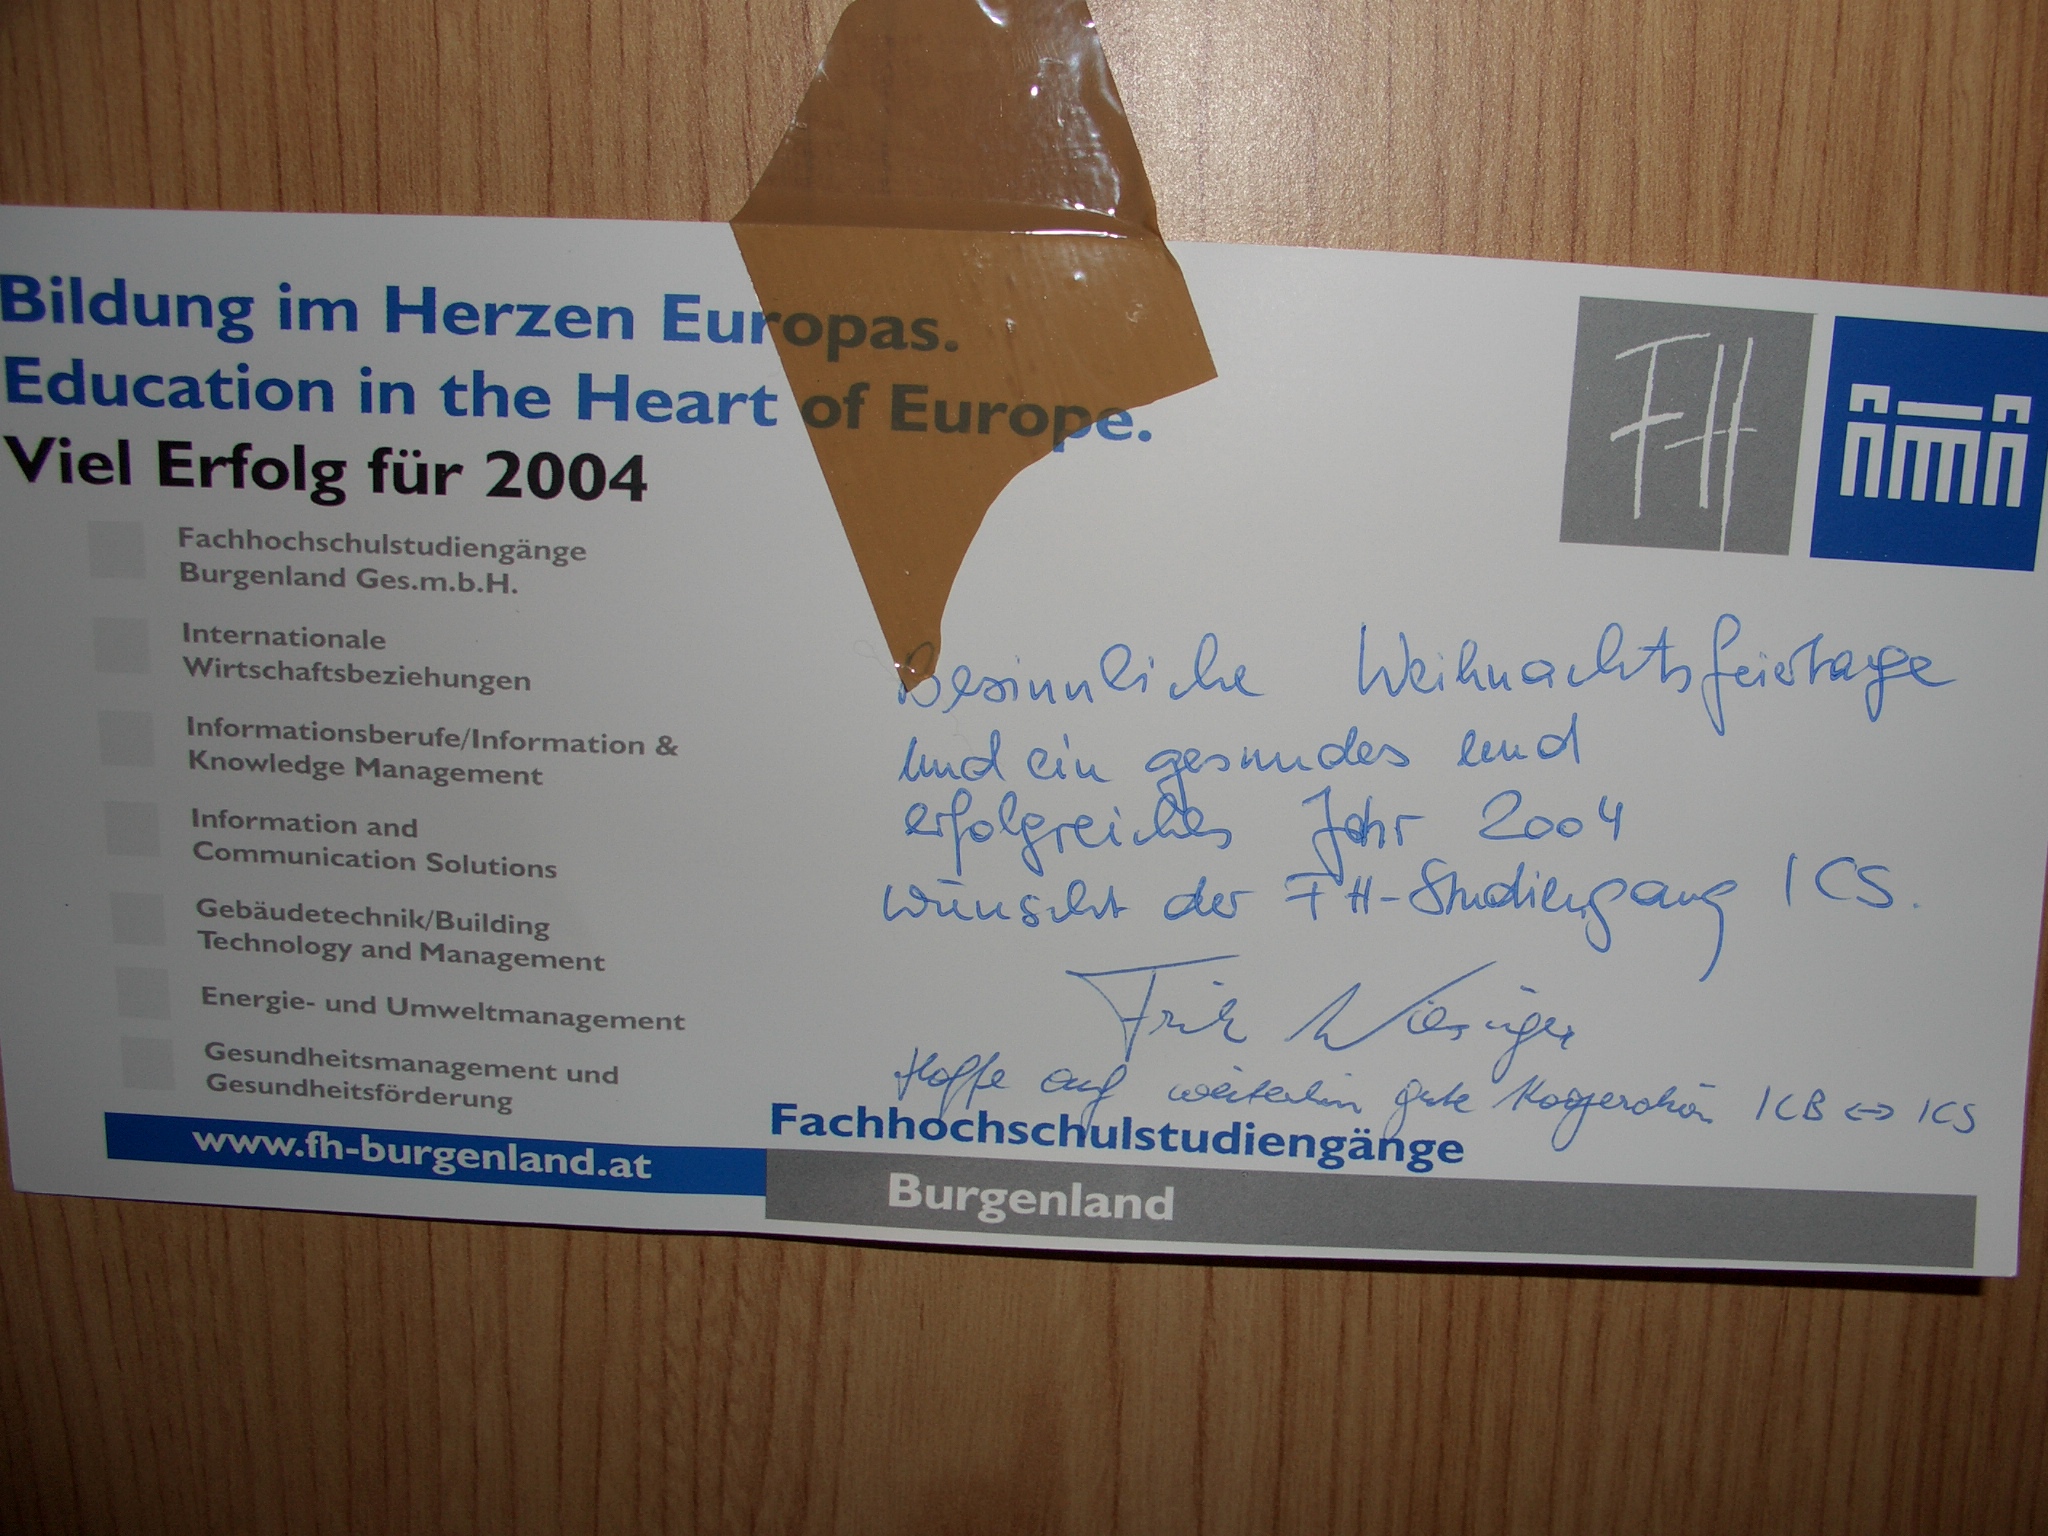 Bildung im Herzen Europas.
Education in the Heart of Europe.
Viel Erfolg für 2004
Fachhochschulstudiengänge
Burgenland Ges.m.b.H.
Internationale
Wirtschaftsbeziehungen
Informationsberufe/Information &
Knowledge Management
Information and
Communication Solutions
Gebäudetechnik/Building
Technology and Management
Energie- und Umweltmanagement
Gesundheitsmanagement und
Gesundheitsförderung
www.fh-burgenland.at
FH
Besinnliche Weihnachtsfeiertage
und ein gesundes und
erfolgreiches Jahr 2004
wünscht der FH-Studiengang ICS.
Wiesinger
Hoffe auf weiterhin gute Kooperation ICB <-> ICS
Fachhochschulstudiengänge
Burgenland